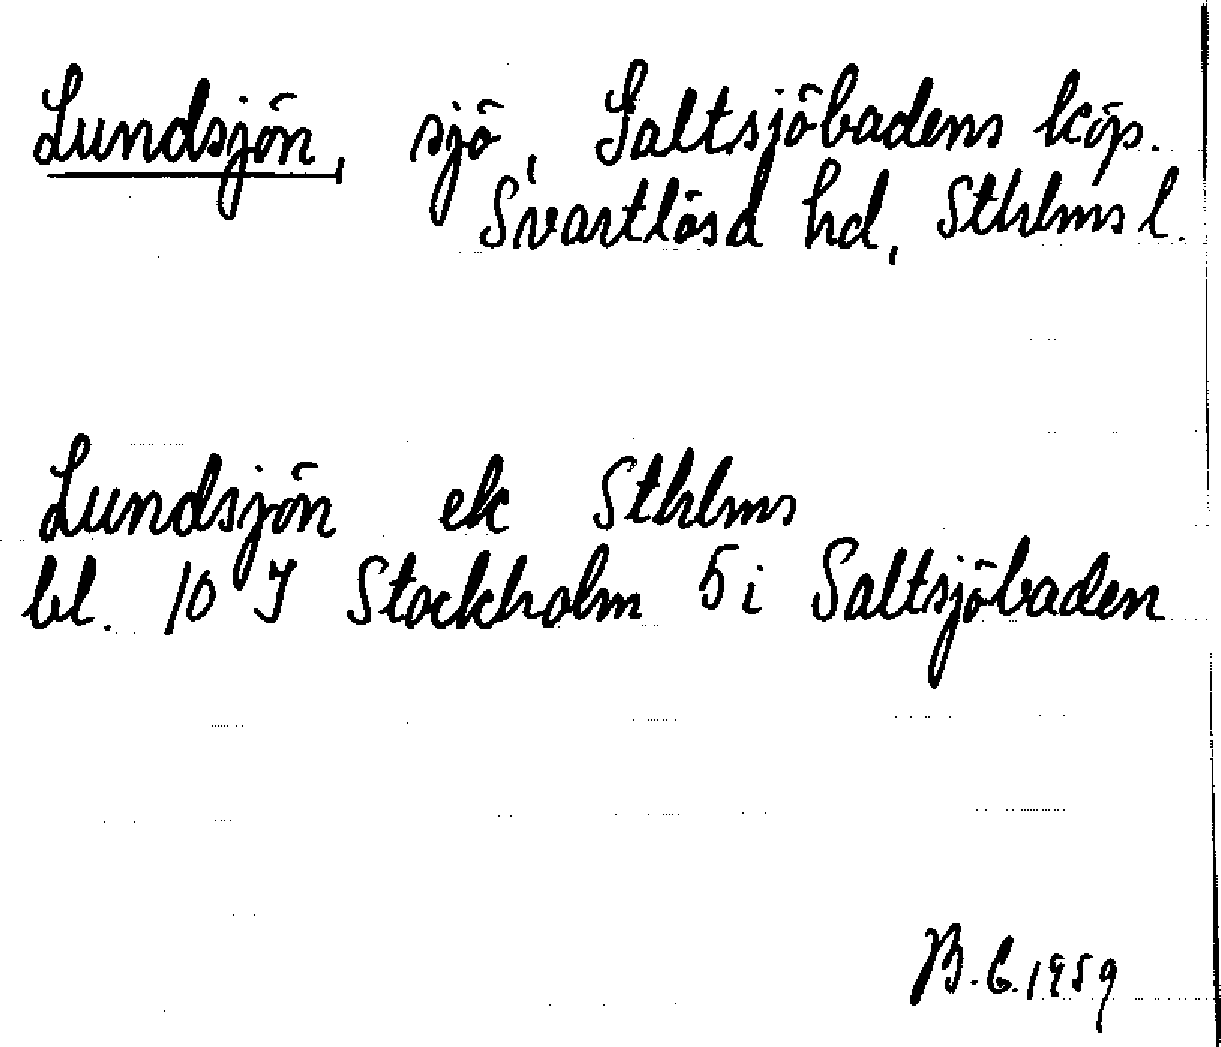 Lundsjön, sjö, Saltsjöbadens köp.
Svartlösa hd, Sthlms l.
Lundsjön ek Sthlms
bl. 10 I Stockholm 5 i Saltsjöbaden
B.C. 1959